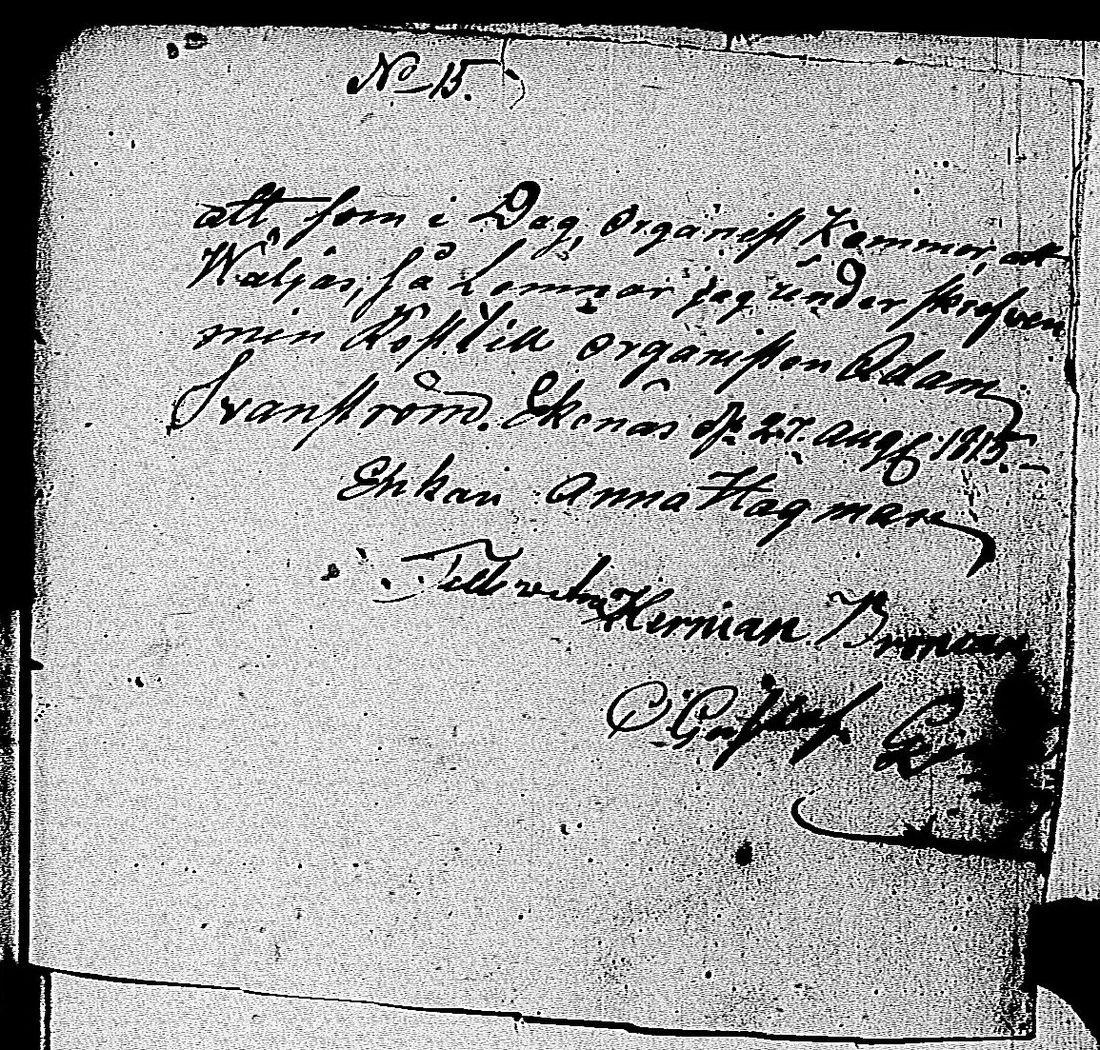 No 15.
att som i Dag organist Kommer, att
Wäljas, så Lemnar jag under skrefven
min Röst till organisten Adam
Svanström. Ekenäs d. 27. aug. 1815.
Enkan Anna Hagman
Till vitne Herman Broman
C. Gustaf